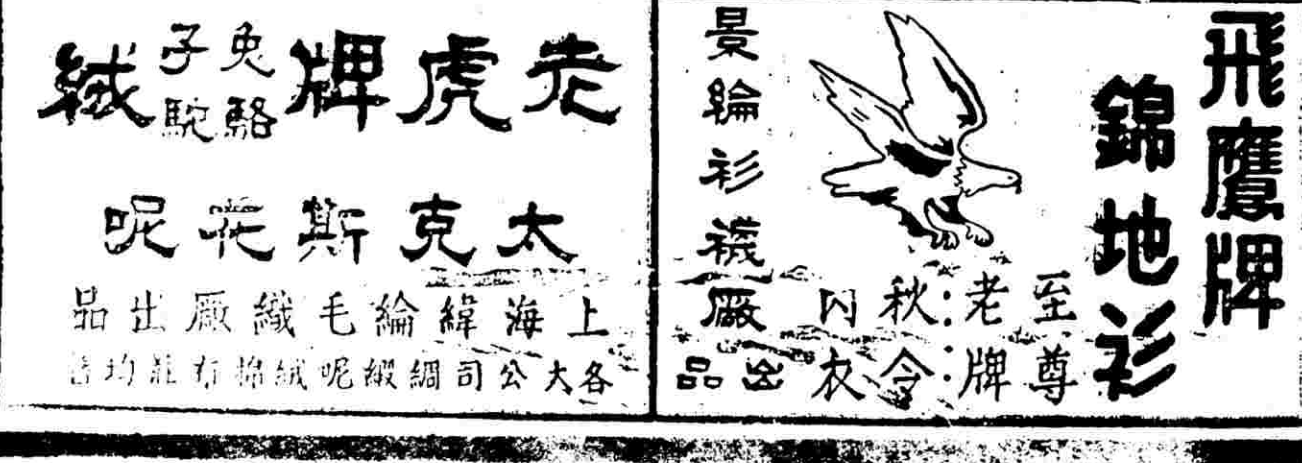 飛鷹牌
錦地衫
至尊
老牌
秋令
內衣
景綸衫襪廠
出品
老虎牌兔子駱駝絨
太克斯花呢
上海緯綸毛織廠出品
各大公司綢緞呢絨棉布莊均售